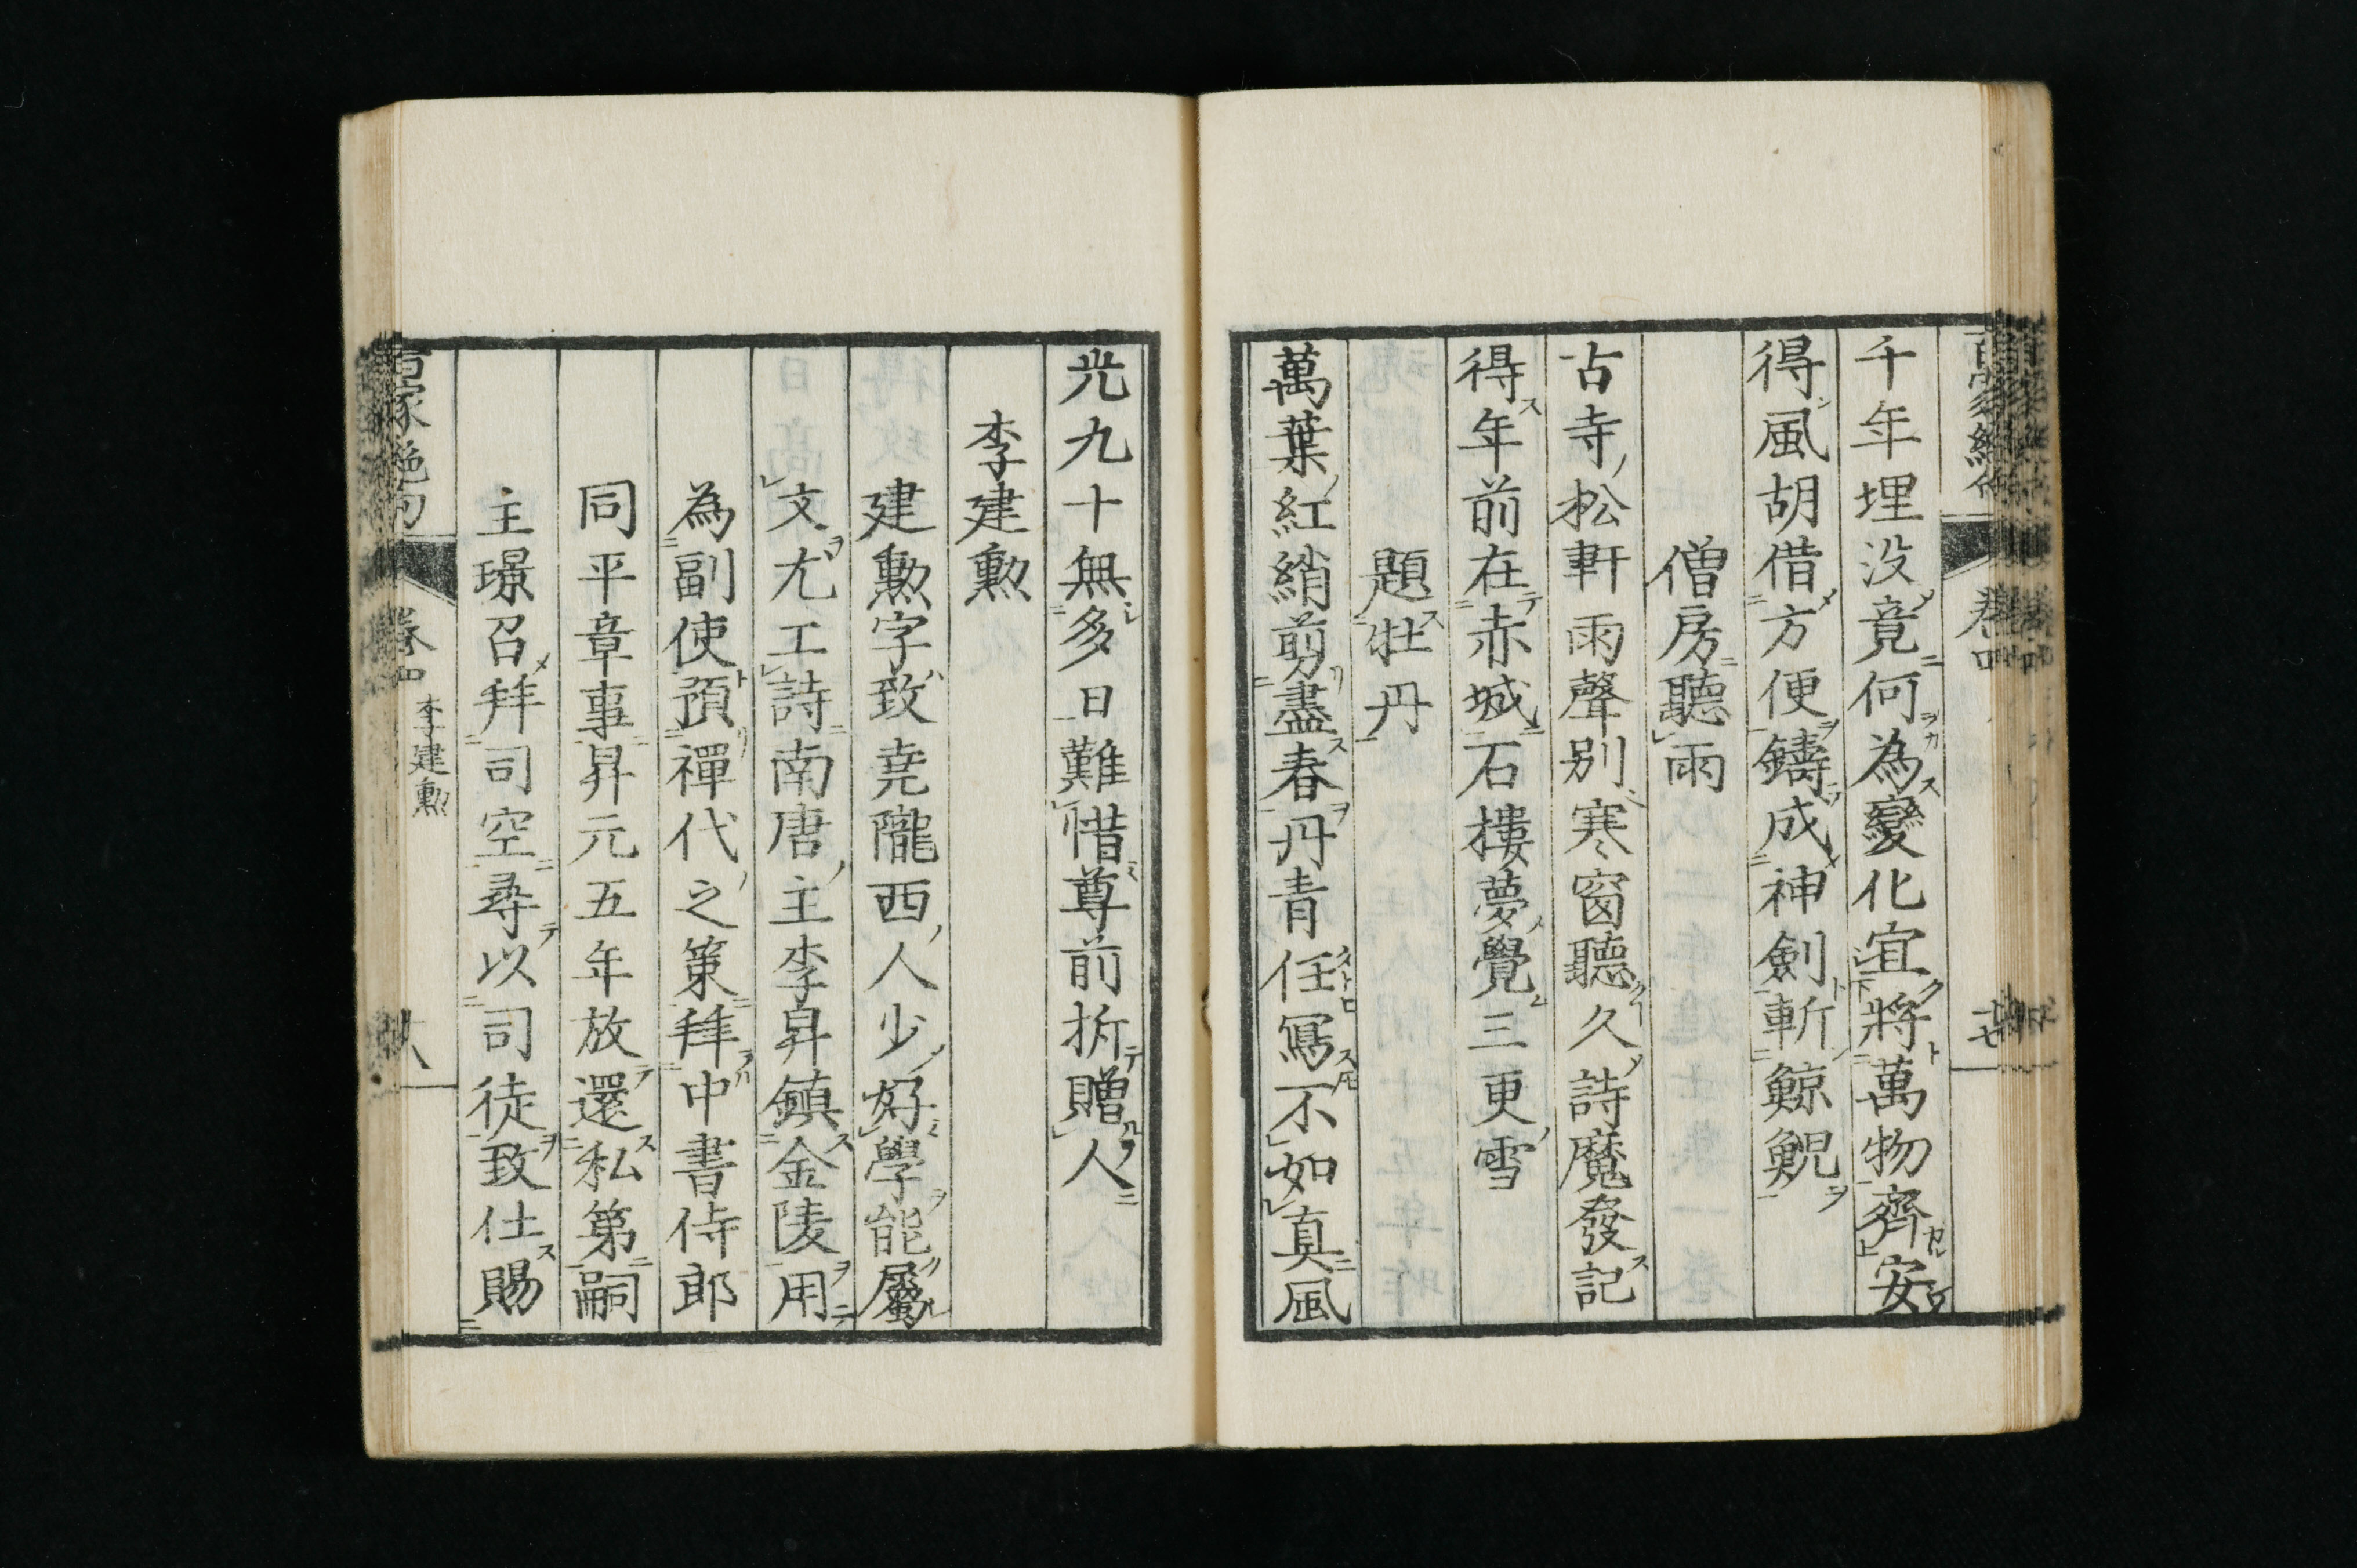 千年埋没竟何為變化宜將萬物齊安
得風胡借方便鑄成神劍斬鯨鯢
僧房聽雨
古寺松軒雨聲別寒窗聽久詩魔發記
得年前在赤城石樓夢覺三更雪
題牡丹
萬葉紅綃剪盡春丹青任寫不如真風
光九十無多日難惜尊前折贈人
李建勲
建勲字致堯隴西人少好學能屬
文尤工詩南唐主李昇鎮金陵用
為副使預禪代之策拜中書侍郎
同平章事昇元五年放還私第嗣
主璟召拜司空尋以司徒致仕賜
百家絶句 卷四 李建勲 十八